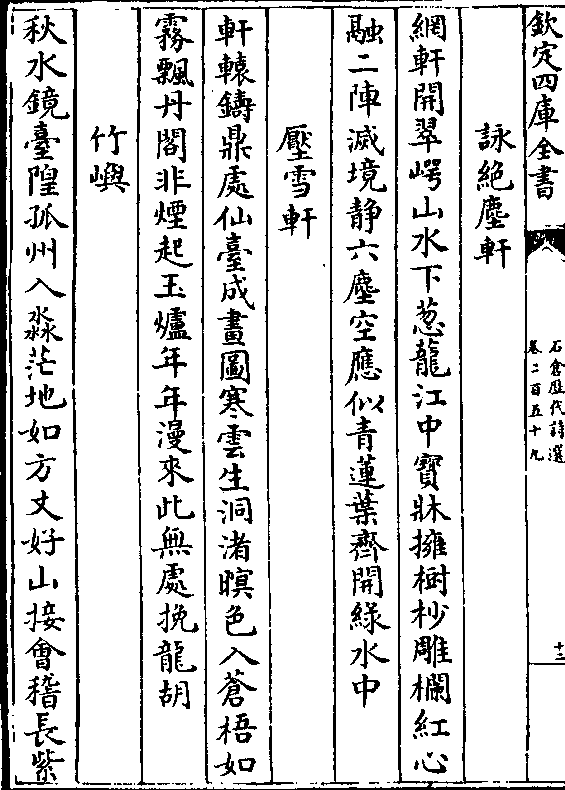 欽定四庫全書
石倉歷代詩選
卷二百五十九
十二
詠絶塵軒
網軒開翠崿山水下葱蘢江中寶牀擁樹杪雕欄紅心
融二陣滅境静六塵空應似青蓮葉齊開緑水中
壓雪軒
軒轅鑄鼎處仙臺成畫圖寒雲生洞渚暝色入蒼梧如
霧飄丹閣非煙起玉爐年年漫來此無處挽龍胡
竹嶼
秋水鏡臺隍孤州入淼茫地如方丈好山接會稽長紫